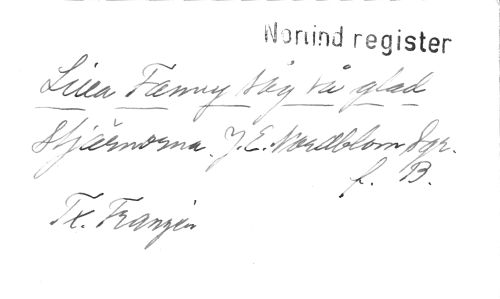 Nonind register
Lilla Fanny såg så glad
Stjärnorna. J. E. Nordblom Sgr.
f. B.
Tx. Franzén